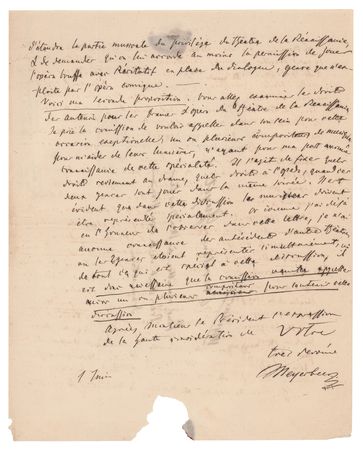 d'étendre la partie musicale du privilège du théâtre de la Renaissance,
et de demander qu'on lui accorde au moins la permission de jouer
l'opéra buffa avec Récitatif en place du dialogue, genre
par l'opéra comique.
Voici ma seconde proposition. Vous allez examiner le droit
des auteurs pour les drames & l'opéra du théâtre de la Renaissance
Je prie la commission de vouloir appeller dans son sein pour cette
occasion exceptionelle, un ou plusieurs compositeurs de musique
pour m'aider de leurs lumières, n'ayant pour ma part aucune
connaissance de cette spécialité. Il s'agit de fixer quels
droits reviennent au drame, quels droits à l'opéra, quand ces
deux genres sont joués dans la même soirée. Il est
évident que dans cette discussion les musiciens doivent
être représentés spécialement. Or comme j'ai déjà
eu l'honneur de l'observer dans cette lettre, je n'ai
aucune connaissance des antécédents d'autres théâtres
où les 2 genres étaient représentés simultanément, ni
de tout ce qui est spécial à cette discussion, il
est donc nécessaire que la commission appelle
un ou plusieurs compositeurs pour soutenir cette
discussion
Agréez Monsieur le Président l'expression
de la haute considération de Votre
très dévoué
Meyerbeer
1 Juin